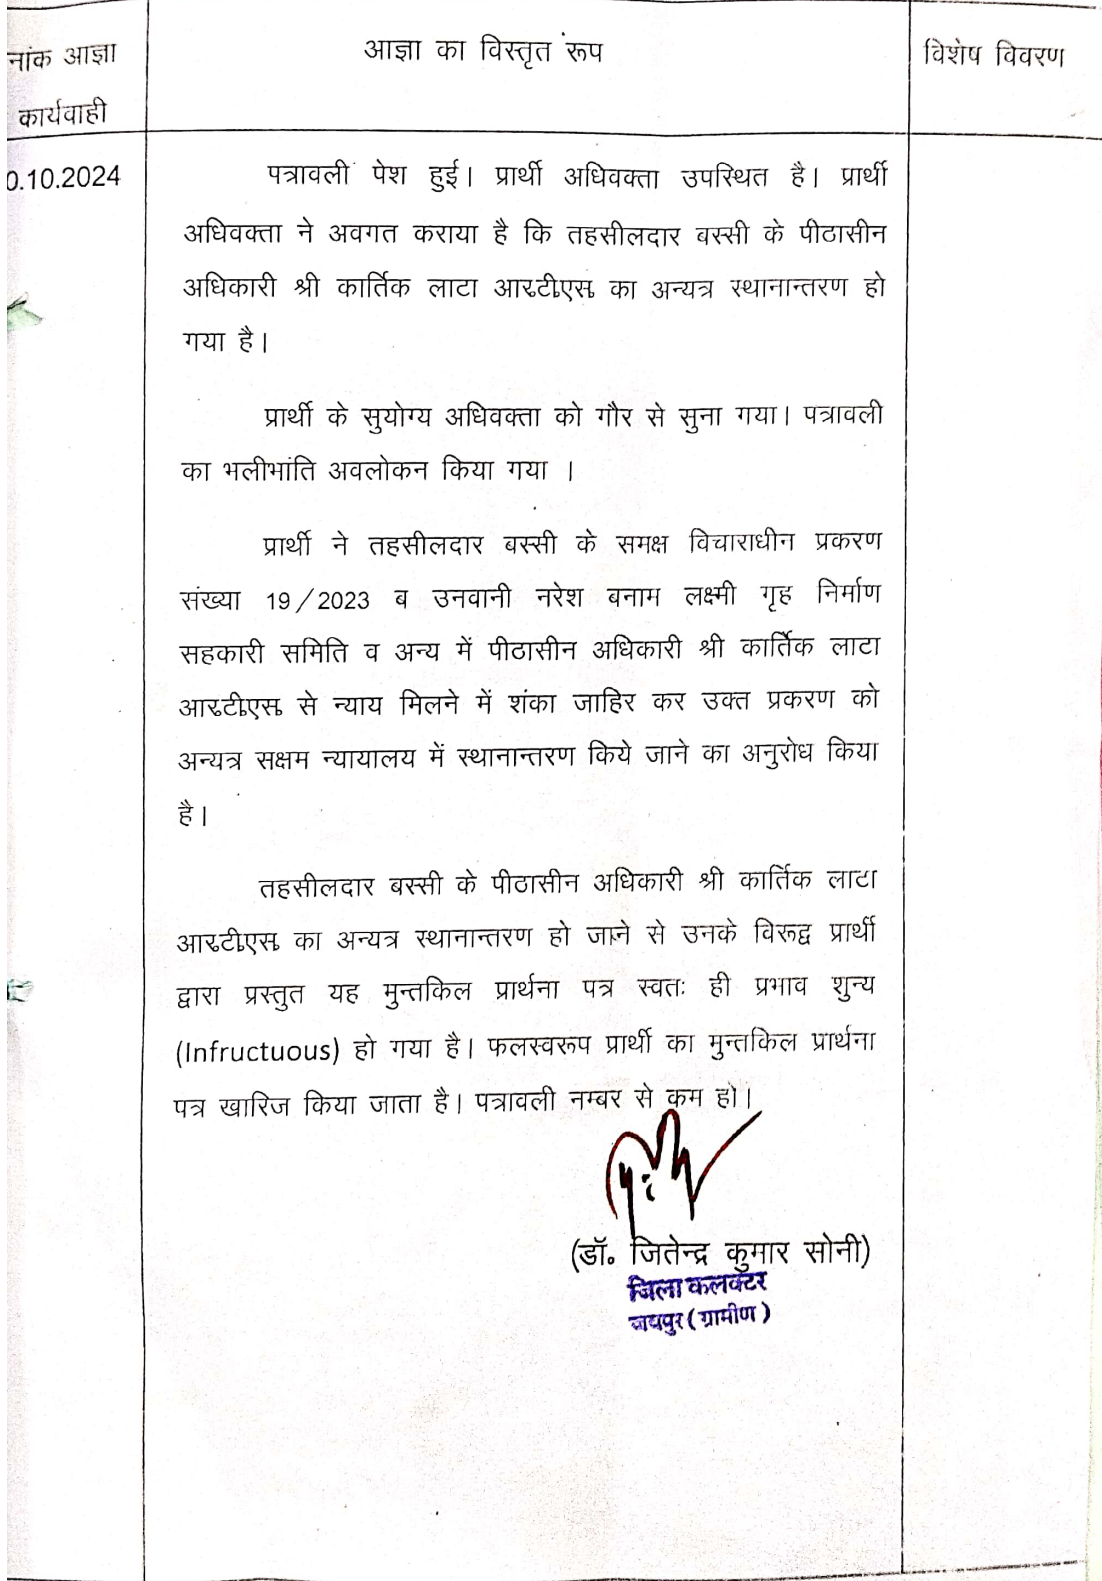 आज्ञा का विस्तृत रूप
विशेष विवरण
नांक आज्ञा
कार्यवाही
0.10.2024
पत्रावली पेश हुई। प्रार्थी अधिवक्ता उपस्थित है। प्रार्थी
अधिवक्ता ने अवगत कराया है कि तहसीलदार बस्सी के पीठासीन
अधिकारी श्री कार्तिक लाटा आर.टी.एस. का अन्यत्र स्थानान्तरण हो
गया है।
प्रार्थी के सुयोग्य अधिवक्ता को गौर से सुना गया। पत्रावली
का भलीभांति अवलोकन किया गया ।
प्रार्थी ने तहसीलदार बस्सी के समक्ष विचाराधीन प्रकरण
संख्या 19/2023 ब उनवानी नरेश बनाम लक्ष्मी गृह निर्माण
सहकारी समिति व अन्य में पीठासीन अधिकारी श्री कार्तिक लाटा
आर.टी.एस. से न्याय मिलने में शंका जाहिर कर उक्त प्रकरण को
अन्यत्र सक्षम न्यायालय में स्थानान्तरण किये जाने का अनुरोध किया
है।
तहसीलदार बस्सी के पीठासीन अधिकारी श्री कार्तिक लाटा
आर.टी.एस. का अन्यत्र स्थानान्तरण हो जाने से उनके विरूद्व प्रार्थी
द्वारा प्रस्तुत यह मुन्तकिल प्रार्थना पत्र स्वतः ही प्रभाव शुन्य
(Infructuous) हो गया है। फलस्वरूप प्रार्थी का मुन्तकिल प्रार्थना
पत्र खारिज किया जाता है। पत्रावली नम्बर से कम हो।
(डॉ० जितेन्द्र कुमार सोनी)
जिला कलक्टर
जयपुर (ग्रामीण)